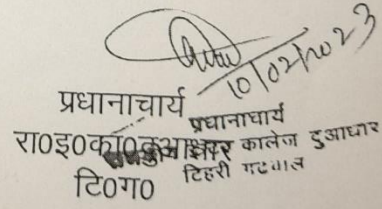 10/02/2023
प्रधानाचार्य
रा०इ०का०दुआधार
टि०ग०
प्रधानाचार्य
कालेज दुआधार
टिहरी गढवाल